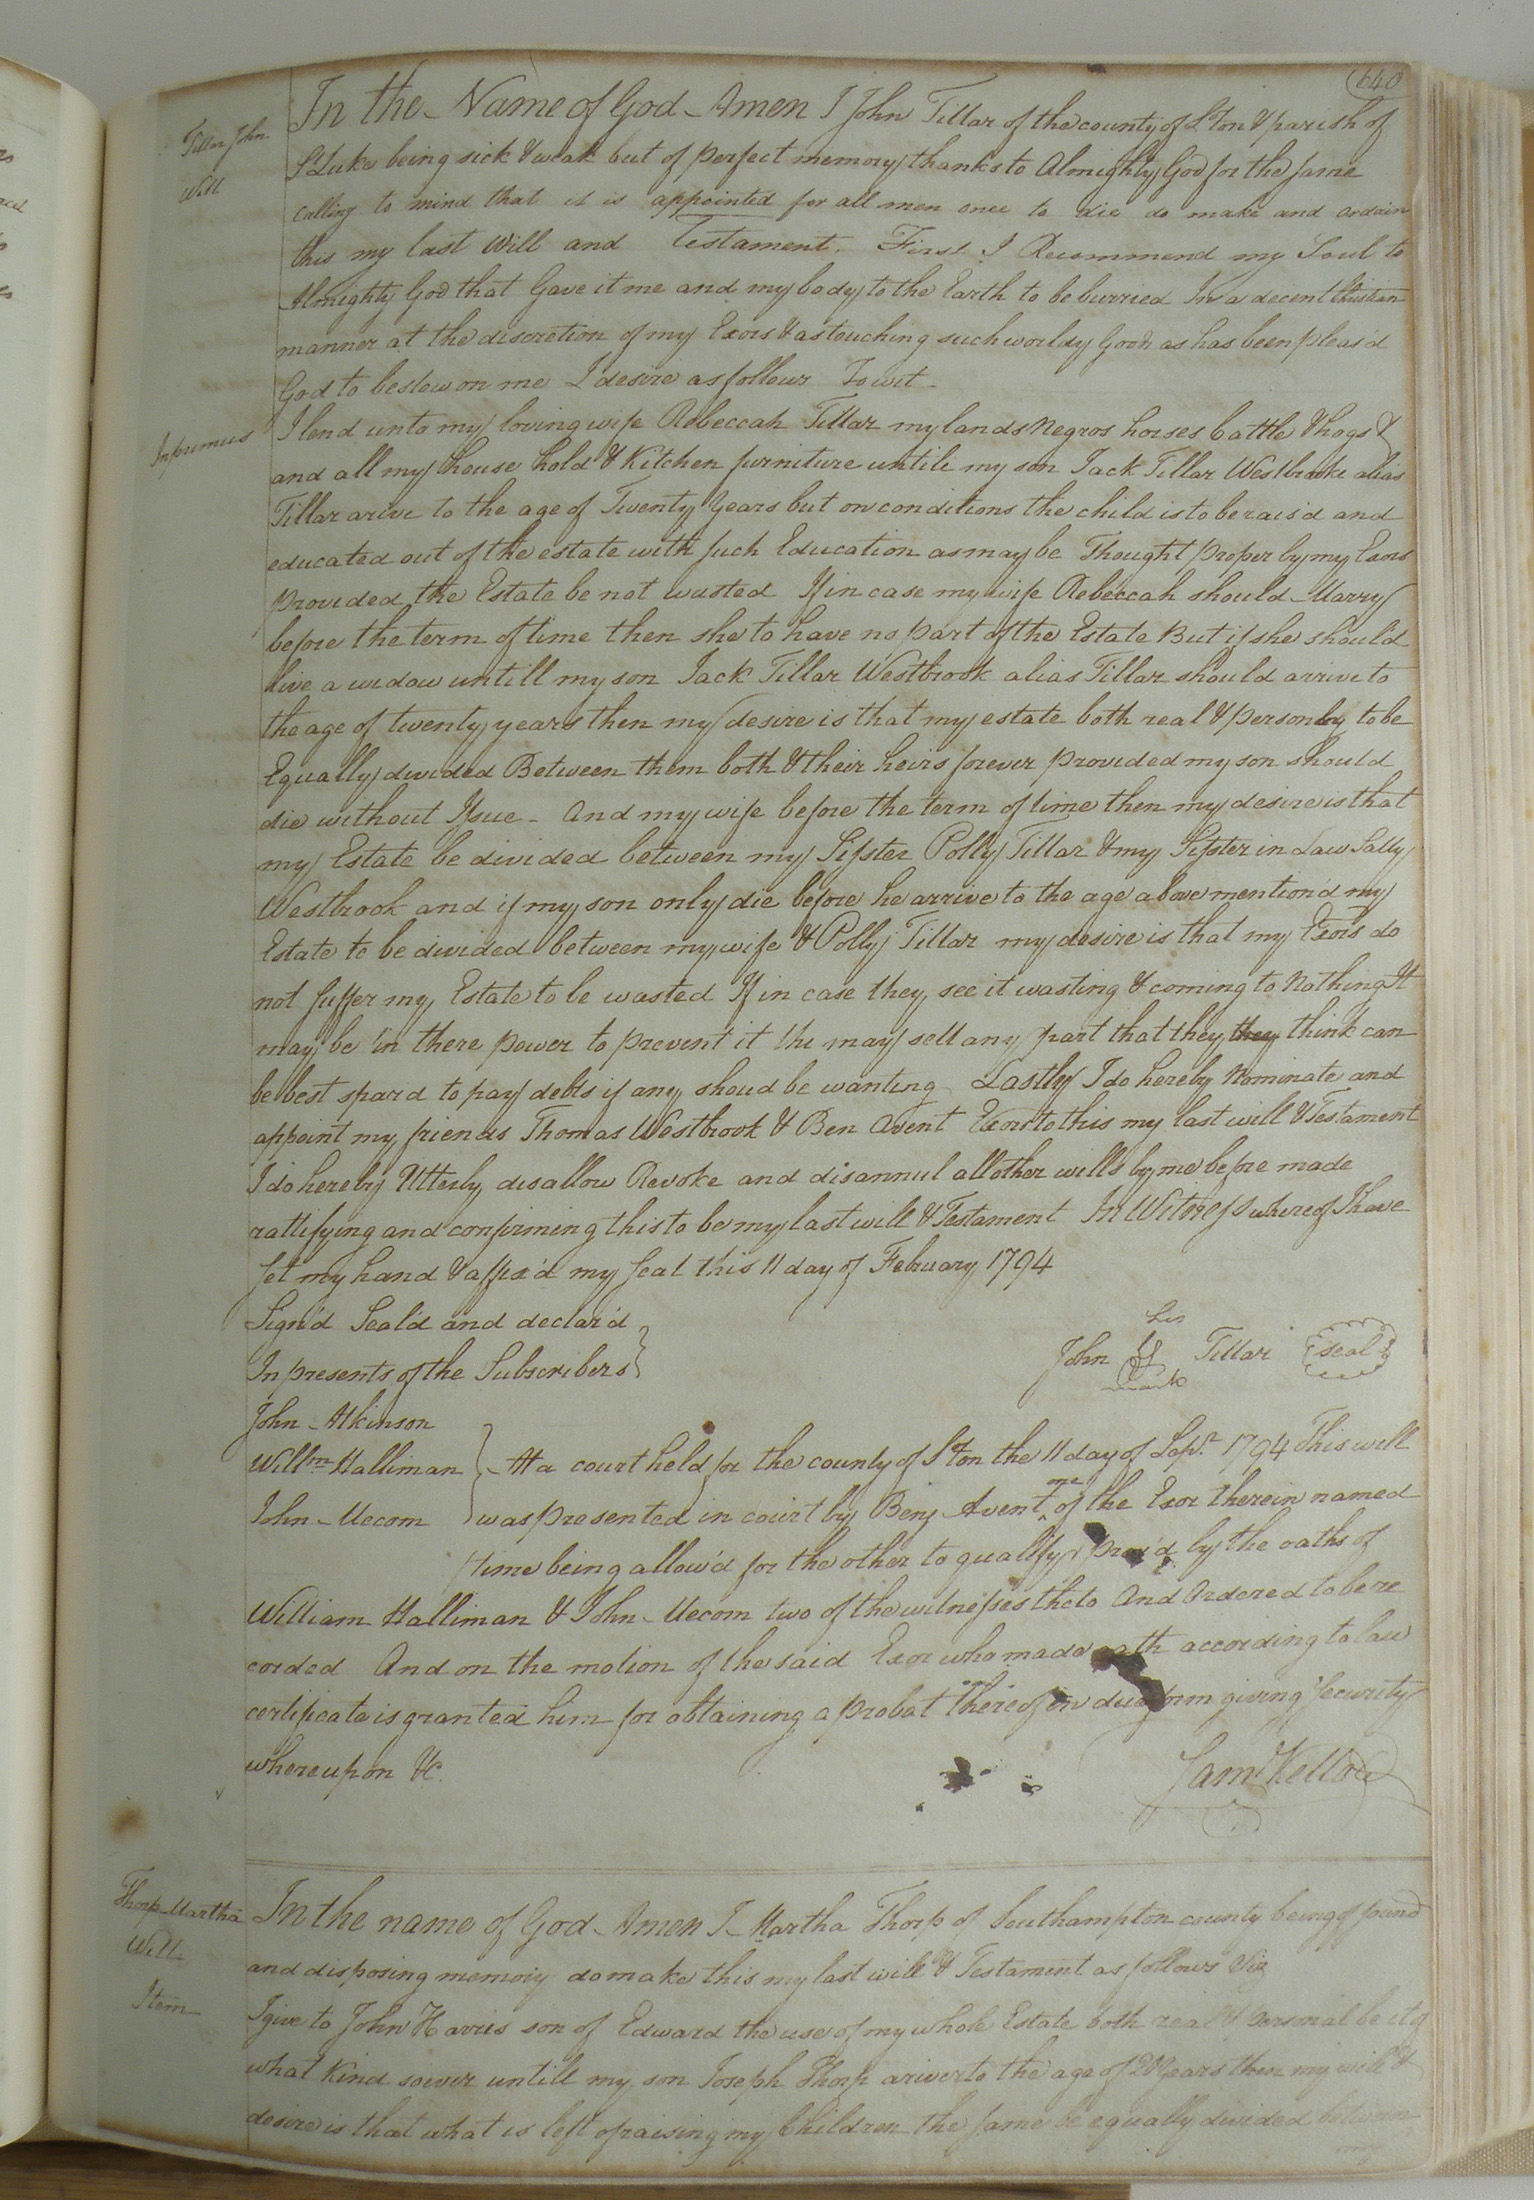 640
Tillar John
Will
In the Name of God Amen I John Tillar of the county of S.ton & parish of
St Luke being sick & weak but of perfect memory thanks to Almighty God for the same
calling to mind that it is appointed for all men once to die do make and ordain
this my last Will and Testament. First I Recommend my Soul to
Almighty God that Gave it me and my body to the Earth to be burried In a decent Christian
manner at the discretion of my Exors & as touching such worldy Goods as has been pleas'd
God to bestow on me I desire as follows Towit
Inprimus
I lend unto my loving wife Rebeccah Tillar my lands Negros horses Cattle & hogs &
and all my house hold & Kitchen furniture untile my son Jack Tillar Westbrooke alias
Tillar arive to the age of Twenty Years but on conditions the child is to be rais'd and
educated out of the estate with such Education as may be Thought proper by my Exors
provided the Estate be not wasted If in case my wife Rebeccah should Marry
before the term of time then she to have no part of the Estate But if she should
live a widow untill my son Jack Tillar Westbrook alias Tillar should arrive to
the age of twenty years then my desire is that my estate both real & personly to be
Equally divided Between them both & their heirs forever provided my son should
die without Issue - And my wife before the term of time then my desire is that
my Estate be divided between my Sisster Polly Tillar & my Sisster in Law Sally
Westbrook and if my son only die before he arrive to the age above mention'd my
Estate to be divided between my wife & Polly Tillar my desire is that my Exors do
not suffer my Estate to be wasted If in case they see it wasting & coming to Nothing It
may be in there power to prevent it the may sell any part that they they think can
be best spar'd to pay debts if any shoud be wanting Lastly I do hereby Nominate and
appoint my friends Thomas Westbrook & Ben Avent Exors to this my last will & Testament
I do hereby Utterly disallow Revoke and disannul all other wills by me before made
rattifying and confirming this to be my last will & Testament In Witness whereof I have
set my hand & affix'd my seal this 11 day of February 1794
Sign'd Seal'd and declar'd
In presents of the Subscribers
his
John Tillar seal
mark
John Atkinson
Willm Halliman
John Mecom
At a court held for the county of S.ton the 11 day of Sepr 1794 This will
was presented in court by Benj Avent one of the Exor therein named
time being allow'd for the other to qualify prov'd by the oaths of
William Halliman & John Mecom two of the witnesses theto And Ordered to be re
corded And on the motion of the said Exor who made oath according to law
certificate is granted him for obtaining a probat thereof in due form giving security
whereupon &c.
Saml Kello CC
Thorp Martha
Will
In the name of God Amen I Martha Thorp of Southampton county being of sound
and disposing memory do make this my last will & Testament as follows Viz
Item
I give to John Harris son of Edward the use of my whole Estate both real & personal be it of
what kind soever untill my son Joseph Thorp arives to the age of 20 years then my will &
desire is that what is left of raising my Children the same be equally divided between
my